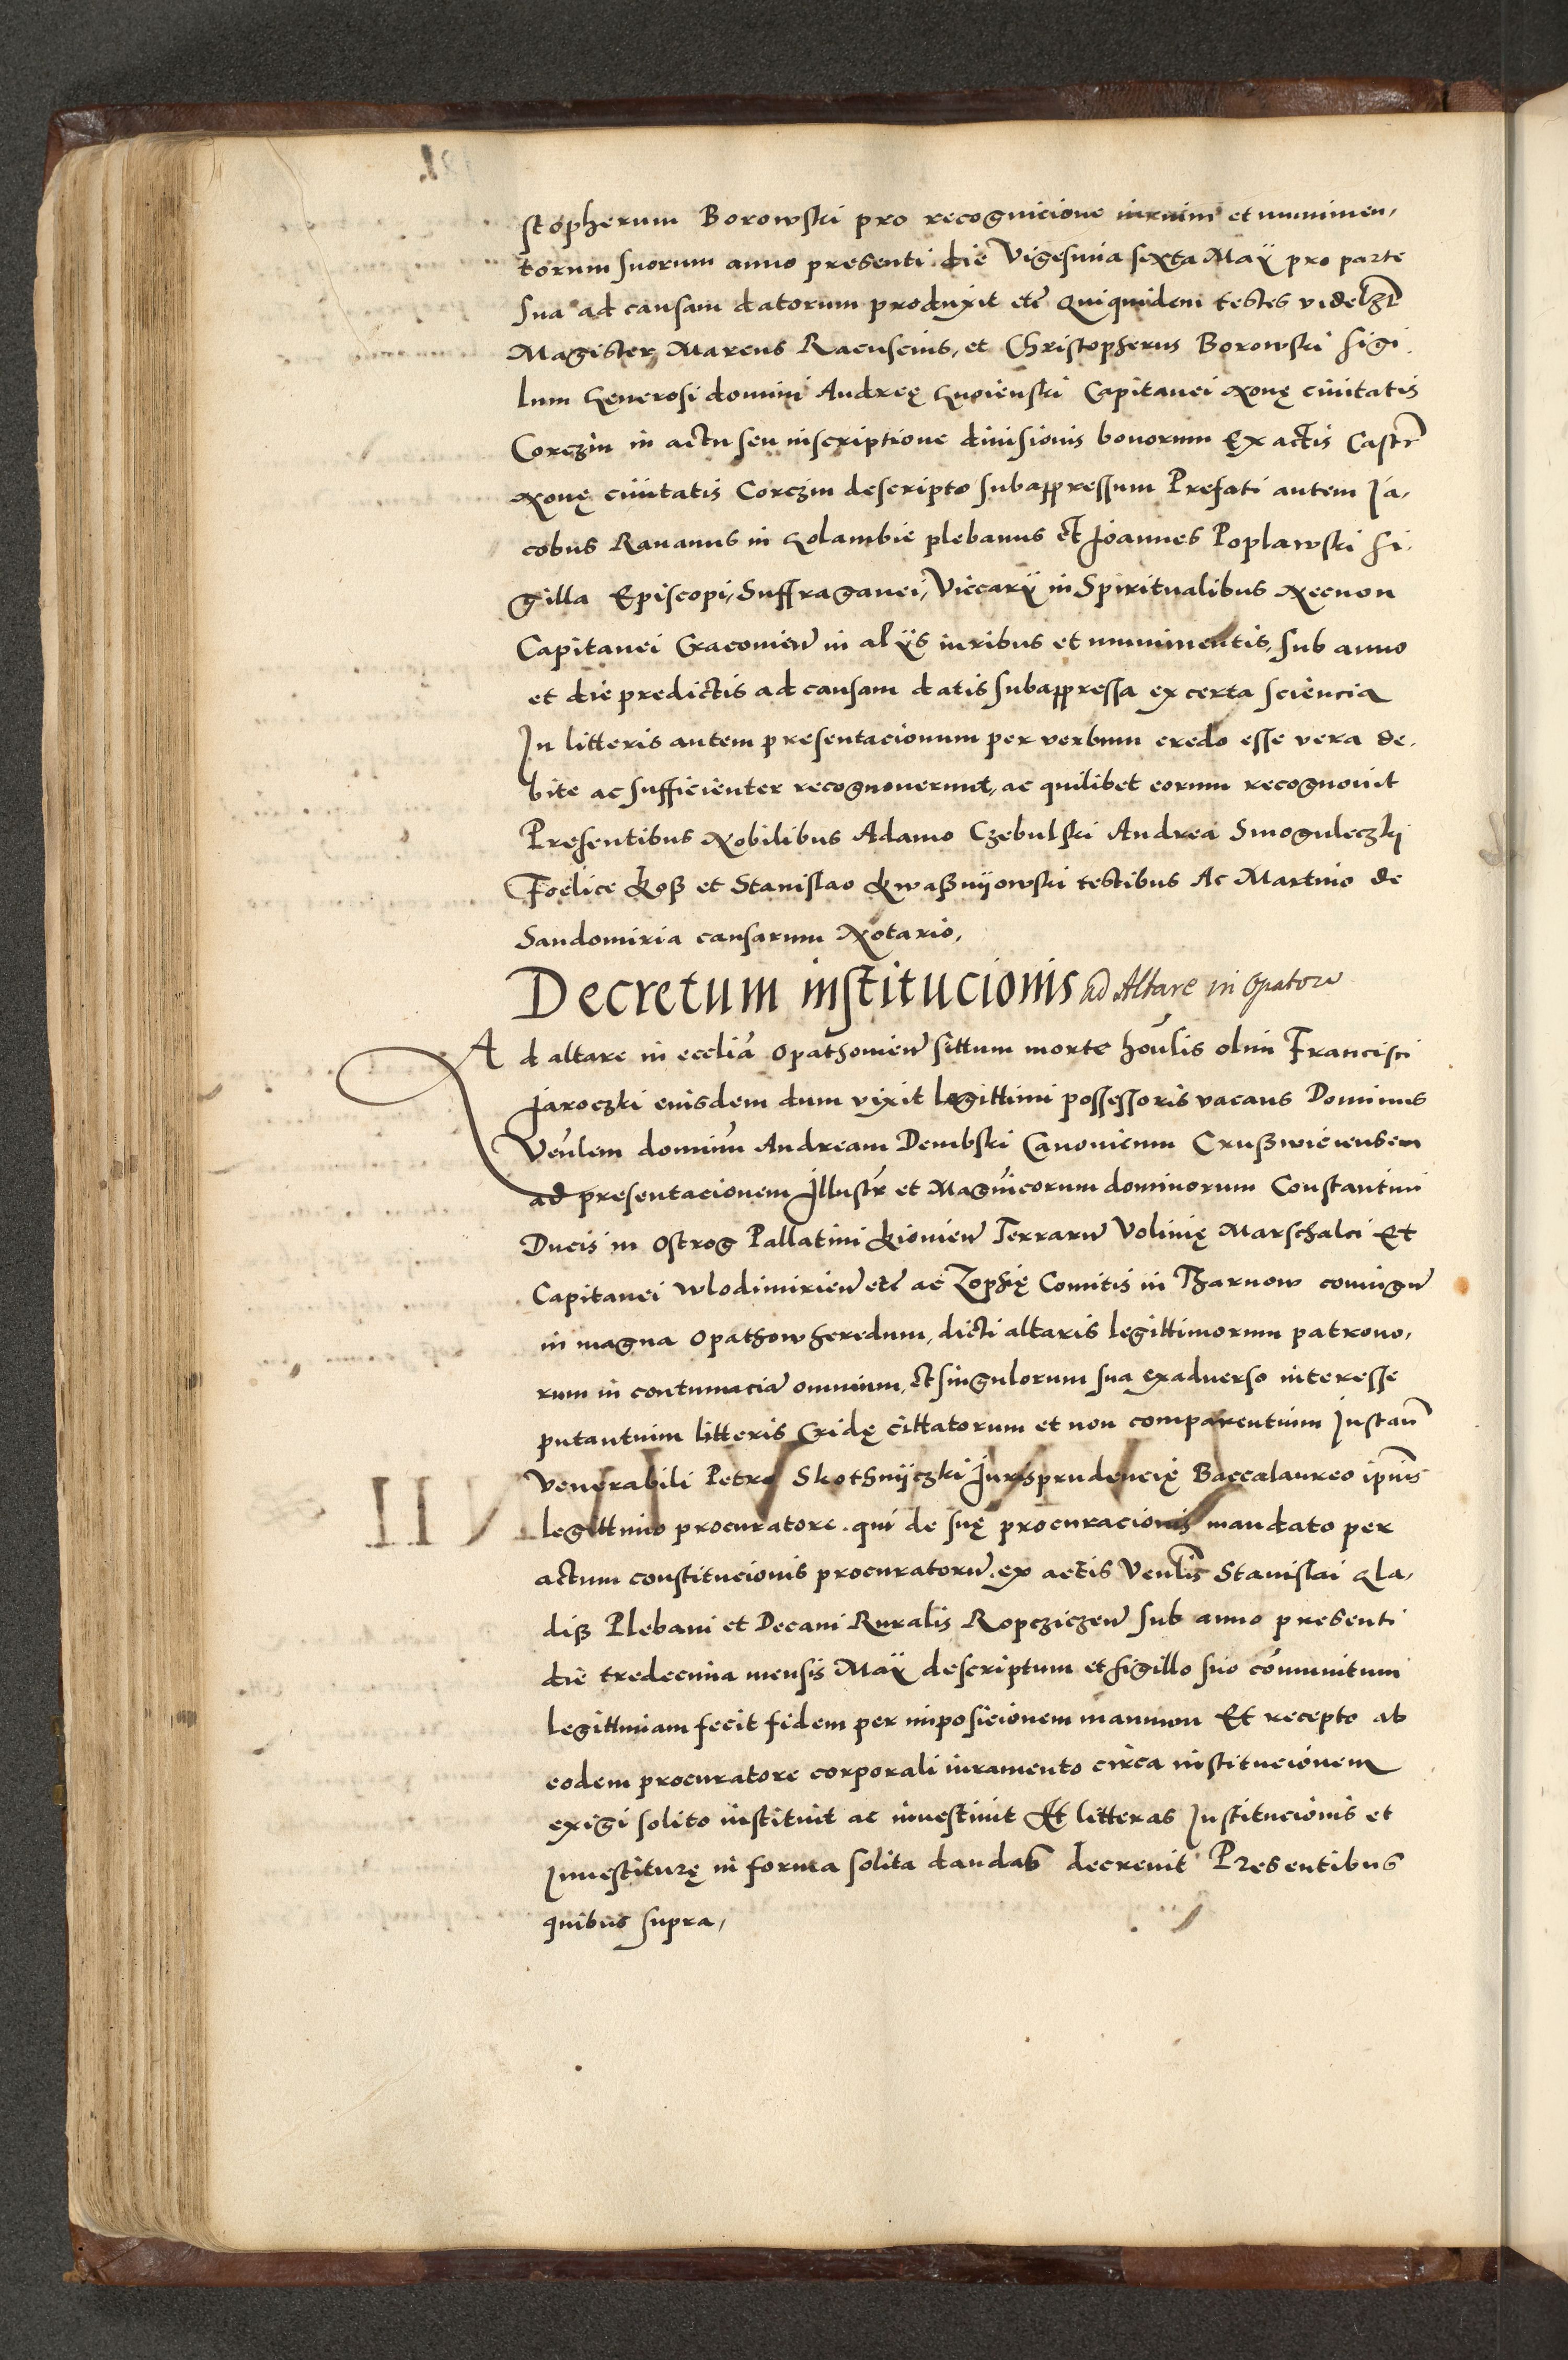 stopherum Borowski pro recognicione iurium et munimen,
torum suorum anno presenti die Vigesima sexta Maÿ pro parte
sua ad causam datorum produxit etc̄ Quiquidem testes videlzt̄
Magister Marcus Racuscius, et Christopherus Borowski sigi
lum Generosi domini Andreę Gnoienski Capitanei Nouę ciuitatis
Corczin in actu seu inscriptione diuisionis bonorum Ex actis Castr̄
Nouę ciuitatis Corczin descripto subappressum Prefati autem Ja,
cobus Rauanus in Golambie plebanus et Joannes Poplawski si,
gilla Episcopi, Suffraganei, Viccarÿ in Spiritualibus Necnon
Capitanei Cracouien̄ in alÿs iuribus et munimentis, sub anno
et die predictis ad causam datis subappressa ex certa sciencia
In litteris autem presentacionum per verbum credo esse vera de,
bite ac sufficienter recognouerunt, ac quilibet eorum recognouit
Presentibus Nobilibus Adamo Czebulski Andrea Smoguleczkj
Foelice Koß et Stanislao Kwaßnijowski testibus Ac Martino de
Sandomiria causarum Notario,
Decretum institucionis ad Altare in Opatow
Ad altare in eccliā Opathouien̄ sittum morte hon̄lis olim Francisci
Jaroczki eiusdem dum vixit legittimi possessoris vacans Dominus
Ven̄lem dominū Andream Dembski Canonicum Crußwiciensem
ad presentacionem Illustr̄ et Magn̄icorum dominorum Constantini
Ducis in Ostrog Pallatini Kiouien̄ Terrarū Volinię Marschalci Et
Capitanei Wlodimirien̄ etc̄ ac Zophię Comitis in Tharnow coniugū
in magna Opathow heredum, dicti altaris legittimorum patrono,
rum in contumaciā omnium, et singulorum sua exaduerso interesse
putantium litteris Cridę cittatorum et non comparentium Instan̄
venerabili Petro Skothnijczki Jurisprudencię Baccalaureo ipīus
legittimo procuratore. qui de suę procuracionis mandato per
actum constitucionis procuratorū ex actis Ven̄lis Stanislai Gla,
diß Plebani et Decani Ruralis Ropcziczen̄ sub anno presenti
die tredecima mensis Maÿ descriptum et sigillo suo cōmunitum
legittimam fecit fidem per imposicionem manuum Et recepto ab
eodem procuratore corporali iuramento circa institucionem
exigi solito instituit ac inuestiuit Et litteras Institucionis et
Inuestiturę in forma solita dandas decreuit Presentibus
quibus supra,